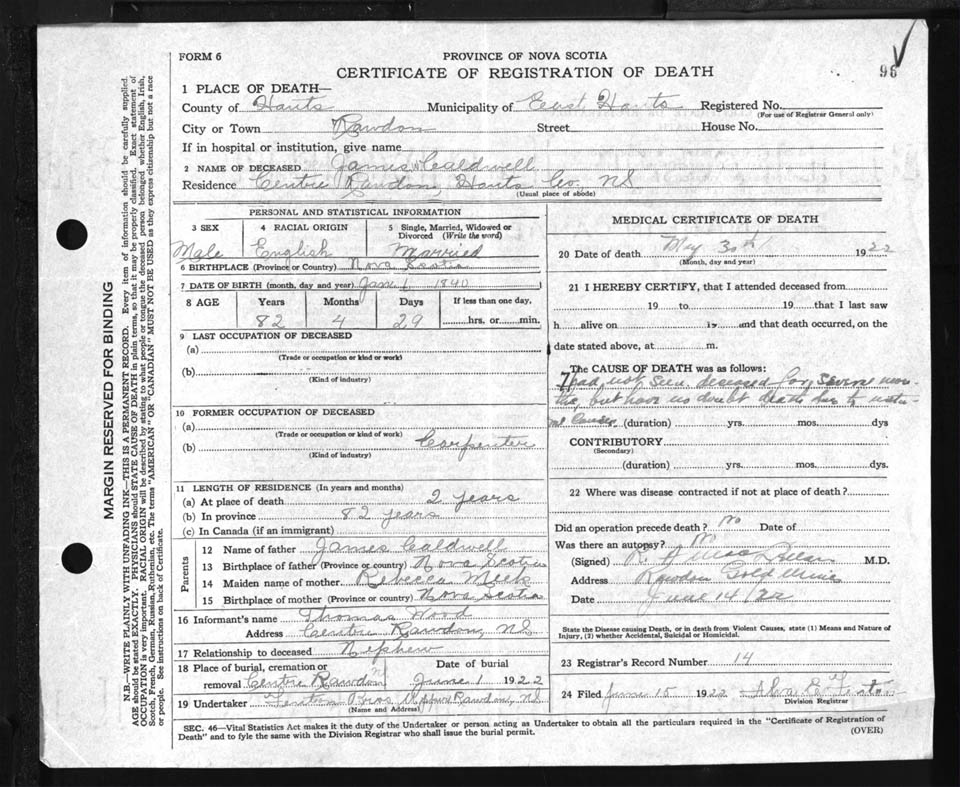 FORM 6
PROVINCE OF NOVA SCOTIA
CERTIFICATE OF REGISTRATION OF DEATH
96
1 PLACE OF DEATH—
County of Hants Municipality of East Hants Registered No.
(For use of Registrar General only)
City or Town Rawdon Street House No.
If in hospital or institution, give name
2 NAME OF DECEASED James Caldwell
Residence Centre Rawdon, Hants Co. N.S.
(Usual place of abode)
PERSONAL AND STATISTICAL INFORMATION
3 SEX 4 RACIAL ORIGIN 5 Single, Married, Widowed or Divorced (Write the word)
Male English Married
6 BIRTHPLACE (Province or Country) Nova Scotia
7 DATE OF BIRTH (month, day and year) Jan 1, 1840
8 AGE Years Months Days If less than one day,
82 4 29 hrs. or min.
9 LAST OCCUPATION OF DECEASED
(a)
(Trade or occupation or kind or work)
(b)
(Kind of industry)
10 FORMER OCCUPATION OF DECEASED
(a)
(Trade or occupation or kind of work)
(b) Carpenter
(Kind of industry)
11 LENGTH OF RESIDENCE (In years and months)
(a) At place of death 2 years
(b) In province 82 years
(c) In Canada (if an immigrant)
Parents
12 Name of father James Caldwell
13 Birthplace of father (Province or country) Nova Scotia
14 Maiden name of mother Rebecca Meek
15 Birthplace of mother (Province or country) Nova Scotia
16 Informant's name Thomas Wood
Address Centre Rawdon, N.S.
17 Relationship to deceased Nephew
18 Place of burial, cremation or removal Centre Rawdon
Date of burial June 1 1922
19 Undertaker Fenton Bros Rawdon, N.S.
(Name and Address)
MEDICAL CERTIFICATE OF DEATH
20 Date of death May 30th 1922
(Month, day and year)
21 I HEREBY CERTIFY, that I attended deceased from
19 to 19 that I last saw
h alive on 19 and that death occurred, on the
date stated above, at m.
The CAUSE OF DEATH was as follows:
I had not seen deceased for some mon-
ths, but have no doubt death due to natu-
ral causes. (duration) yrs. mos. dys
CONTRIBUTORY
(Secondary)
(duration) yrs. mos. dys.
22 Where was disease contracted if not at place of death?
Did an operation precede death? No Date of
Was there an autopsy? No
(Signed) M.D.
Address Rawdon Gold Mines
Date June 14/22
State the Disease causing Death, or in death from Violent Causes, state (1) Means and Nature of
Injury, (2) whether Accidental, Suicidal or Homicidal.
23 Registrar's Record Number 14
24 Filed June 15 1922
Division Registrar
SEC. 46—Vital Statistics Act makes it the duty of the Undertaker or person acting as Undertaker to obtain all the particulars required in the "Certificate of Registration of
Death" and to fyle the same with the Division Registrar who shall issue the burial permit.
(OVER)
MARGIN RESERVED FOR BINDING
N.B.—WRITE PLAINLY WITH UNFADING INK—THIS IS A PERMANENT RECORD. Every item of information should be carefully supplied.
AGE should be stated EXACTLY. PHYSICIANS should STATE CAUSE OF DEATH in plain terms, so that it may be properly classified. Exact statement of
OCCUPATION is very important. RACIAL ORIGIN will be described by stating to what people or tongue the deceased person belonged whether English, Irish,
Scotch, French, German, Russian, Ruthenian, etc. The terms "AMERICAN" OR "CANADIAN" MUST NOT BE USED as they express citizenship but not a race
or people. See instructions on back of Certificate.